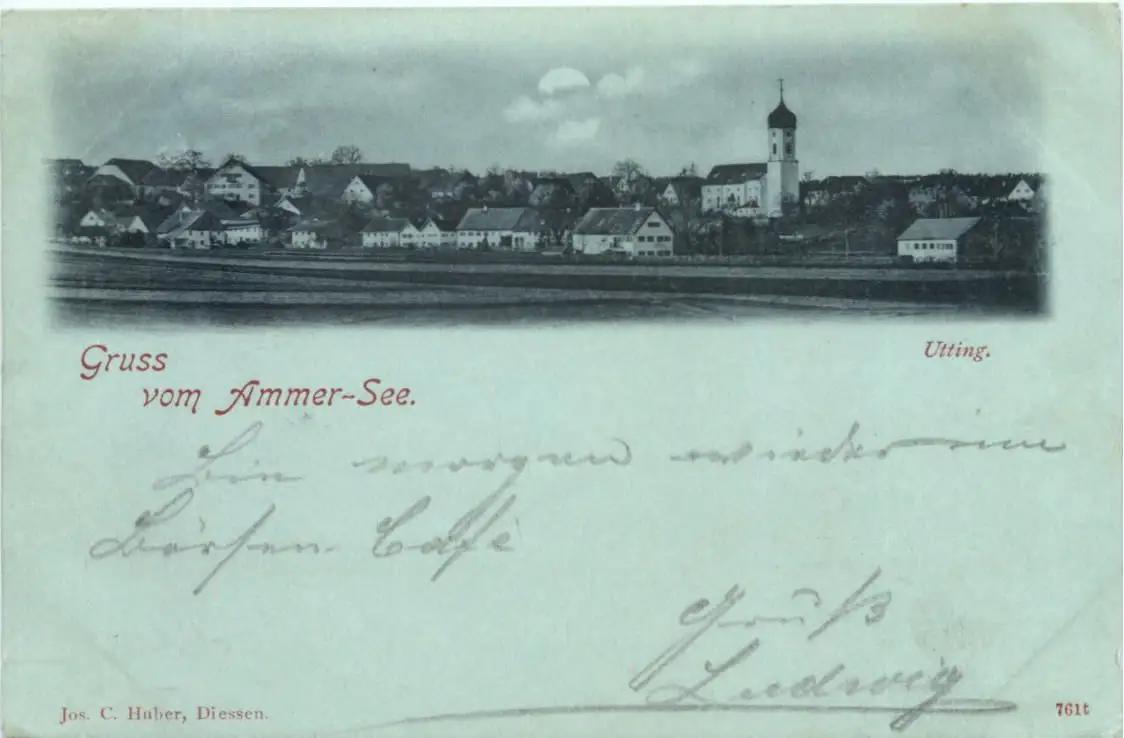 Utting.
Gruss
vom Ammer-See.
Bin morgen wieder im
Börsen Café
Gruß
Ludwig
Jos. C. Huber, Diessen.
761t